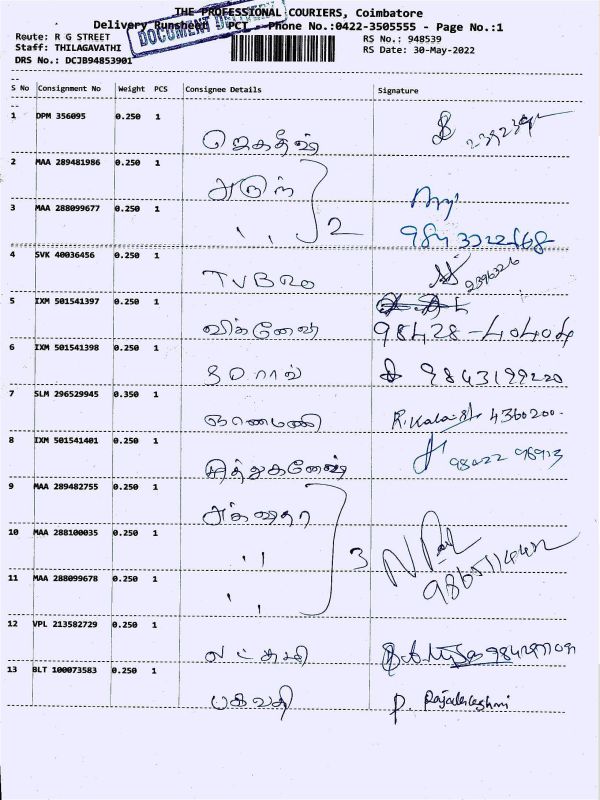 THE PROFESSIONAL COURIERS, Coimbatore
Delivery Runsheet PCT - Phone No.:0422-3505555 - Page No.:1
DOCUMENT DELIVERY
Route: R G STREET
RS No.: 948539
Staff: THILAGAVATHI
RS Date: 30-May-2022
DRS No.: DCJB94853901
S No Consignment No Weight PCS Consignee Details Signature
1 DPM 356095 0.250 1
ஜெகதீஷ்
2 MAA 289481986 0.250 1
அருண்
3 MAA 288099677 0.250 1
,, 2
4 SVK 40036456 0.250 1
TVBRO 2396326
5 IXM 501541397 0.250 1
விக்னேஷ் 98428-40404
6 IXM 501541398 0.250 1
9843199220
7 SLM 296529945 0.350 1
ஞானமணி R.Kala 4360200.
8 IXM 501541401 0.250 1
சித்துகணேஷ்
9 MAA 289482755 0.250 1
அக்ஷயா
10 MAA 288100035 0.250 1
,, 3
11 MAA 288099678 0.250 1
,,
12 VPL 213582729 0.250 1
லட்சுமி
13 BLT 100073583 0.250 1
பகவதி P. Rajalakshmi